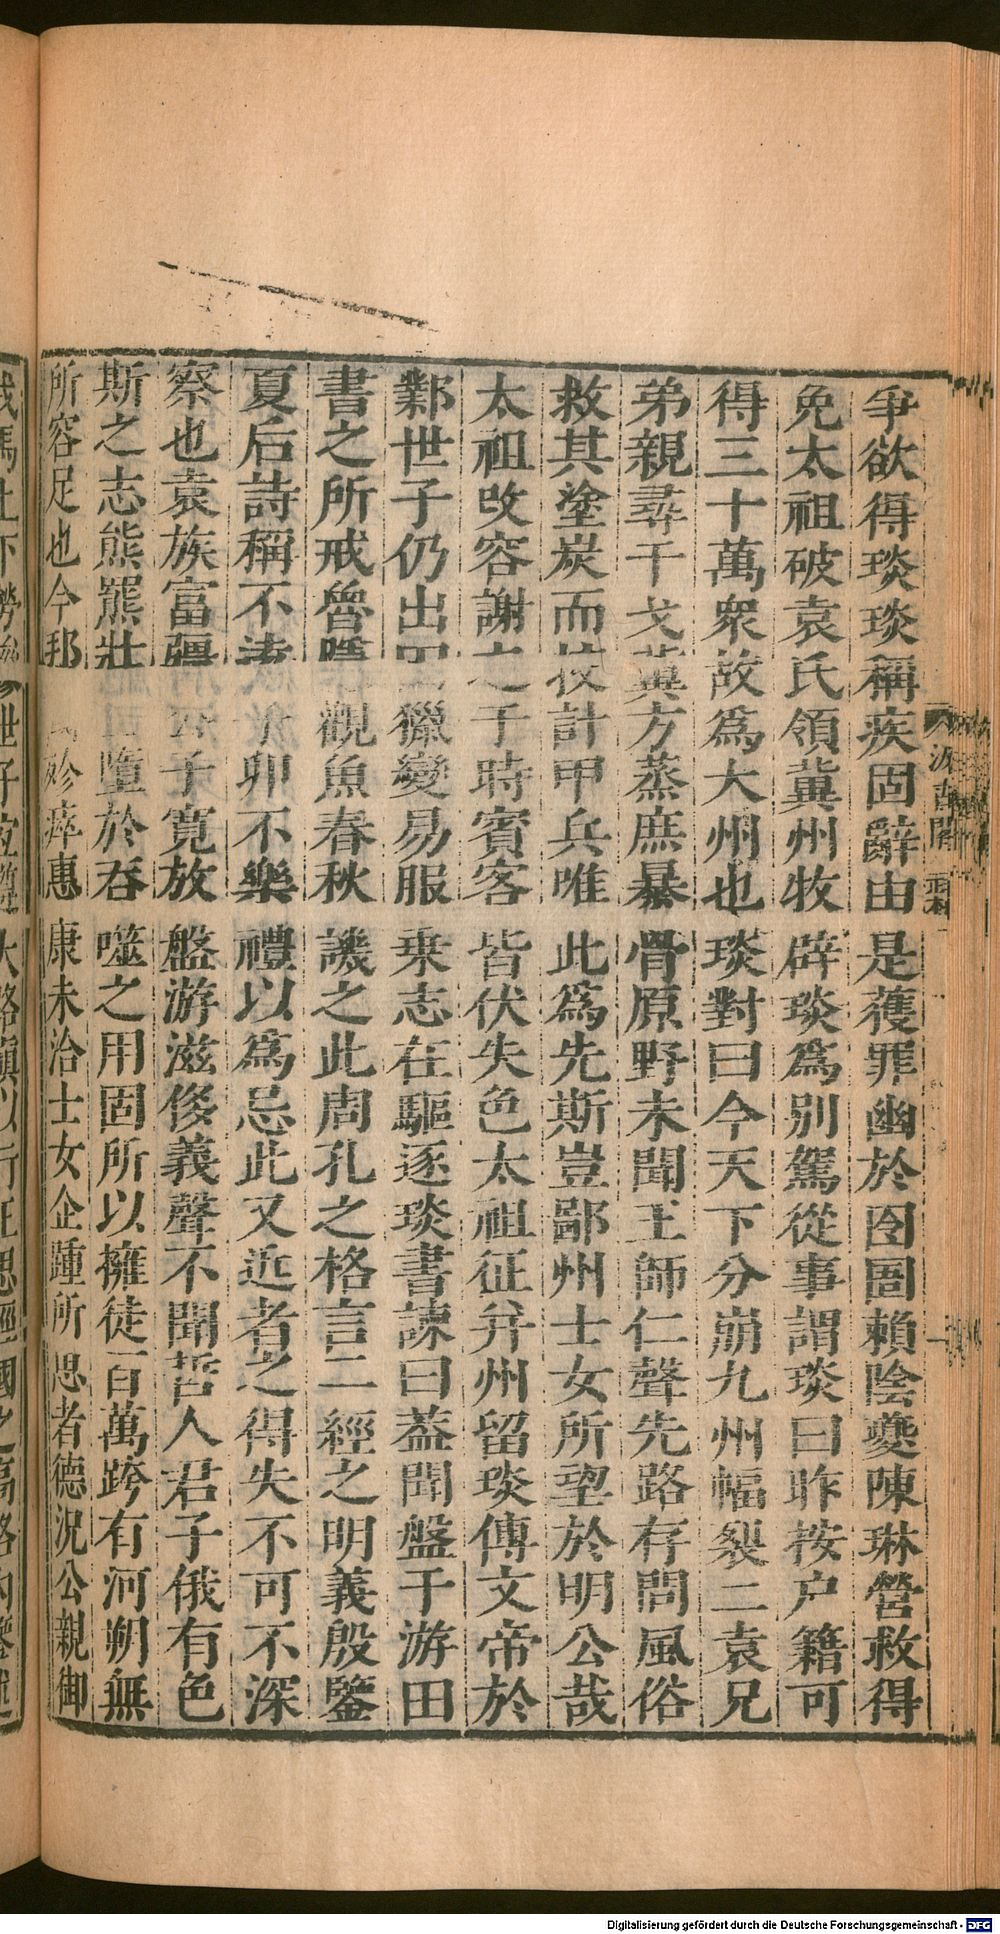 争欲得琰琰稱疾固辭由是蒦罪幽於囹圄賴陰夔陳琳營救得
免太祖破袁氏領冀州牧辟琰爲别駕從事謂琰曰昨按户籍可
得三十萬衆故爲大州也琰對曰今天下分崩九州幅裂二袁兄
弟親尋干戈冀方蒸庶暴骨原野未聞王師仁聲先路存問風俗
救其塗炭而校計甲兵唯此爲先斯豈鄙州士女所望於明公哉
太祖改容謝之于時賓客皆伏失色太祖征并州留琰傳文帝於
鄴世子仍出田獵變易服乗志在驅逐琰書諫曰葢聞盤于游田
書之所戒魯隱觀魚春秋譏之此周孔之格言二經之明義殷鑒
夏后詩稱不遠子卯不樂禮以爲忌此又近者之得失不可不深
察也袁族富彊 子寛放盤游滋侈義聲不聞哲人君子俄有色
斯之志熊羆壯 墮於吞噬之用固所以擁徒百萬跨有河朔無
所容足也今邦 殄瘁惠康未洽士女企踵所思者德況公親御